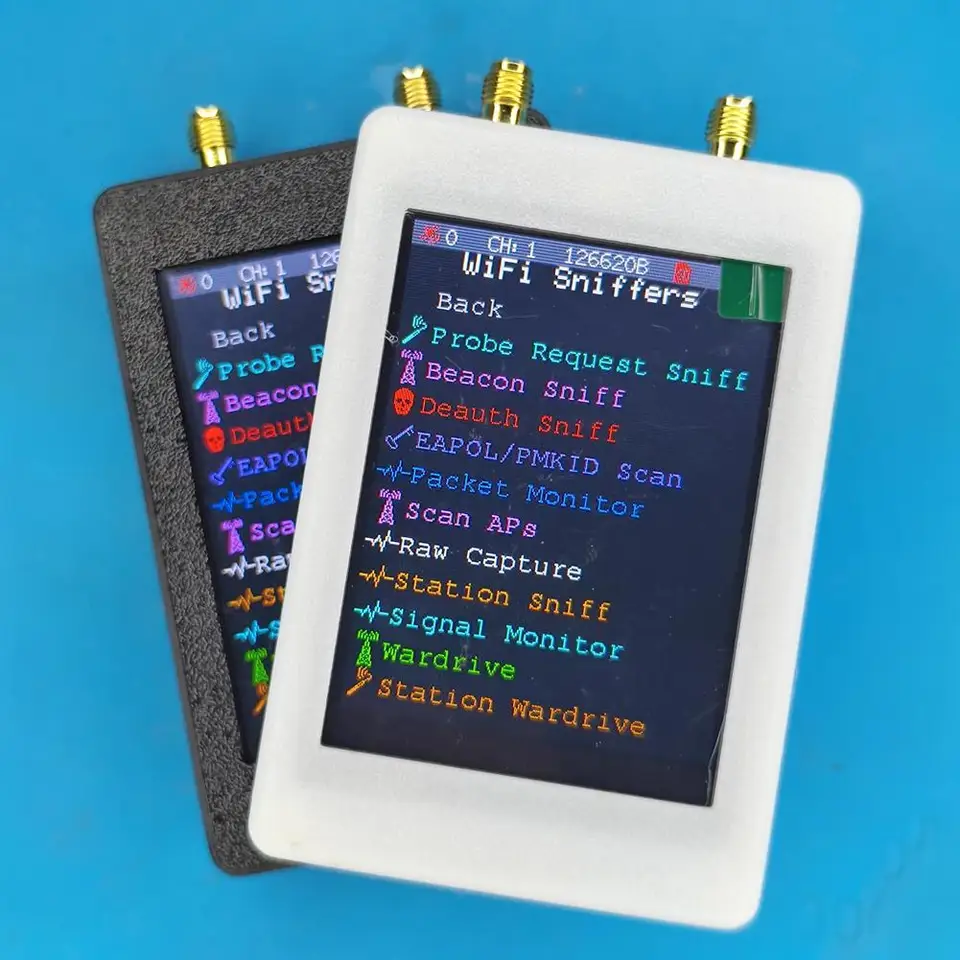 0 CH: 1 126620B
WiFi Sniffers
Back
Probe Request Sniff
Beacon Sniff
Deauth Sniff
EAPOL/PMKID Scan
Packet Monitor
Scan APs
Raw Capture
Station Sniff
Signal Monitor
Wardrive
Station Wardrive
0 CH: 1 126
WiFi Sn
Back
Probe R
Beacon
Deaut
EAPOL
Pack
Sca
Ra
St
S